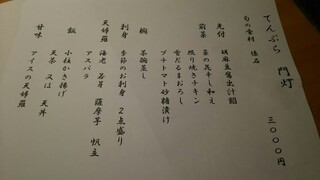 てんぷら 門灯 三〇〇〇円
旬の食材 懐石
先付 胡麻豆腐出汁餡
前菜 菜の花辛し和え
照り焼きチキン
雪だるまおろし
プチトマト砂糖漬け
椀 茶碗蒸し
刺身 季節のお刺身 2点盛り
天婦羅 海老 若芽 薩摩芋 帆立
アスパラ
飯 小柱かき揚げ
天茶 又は 天丼
甘味 アイスの天婦羅